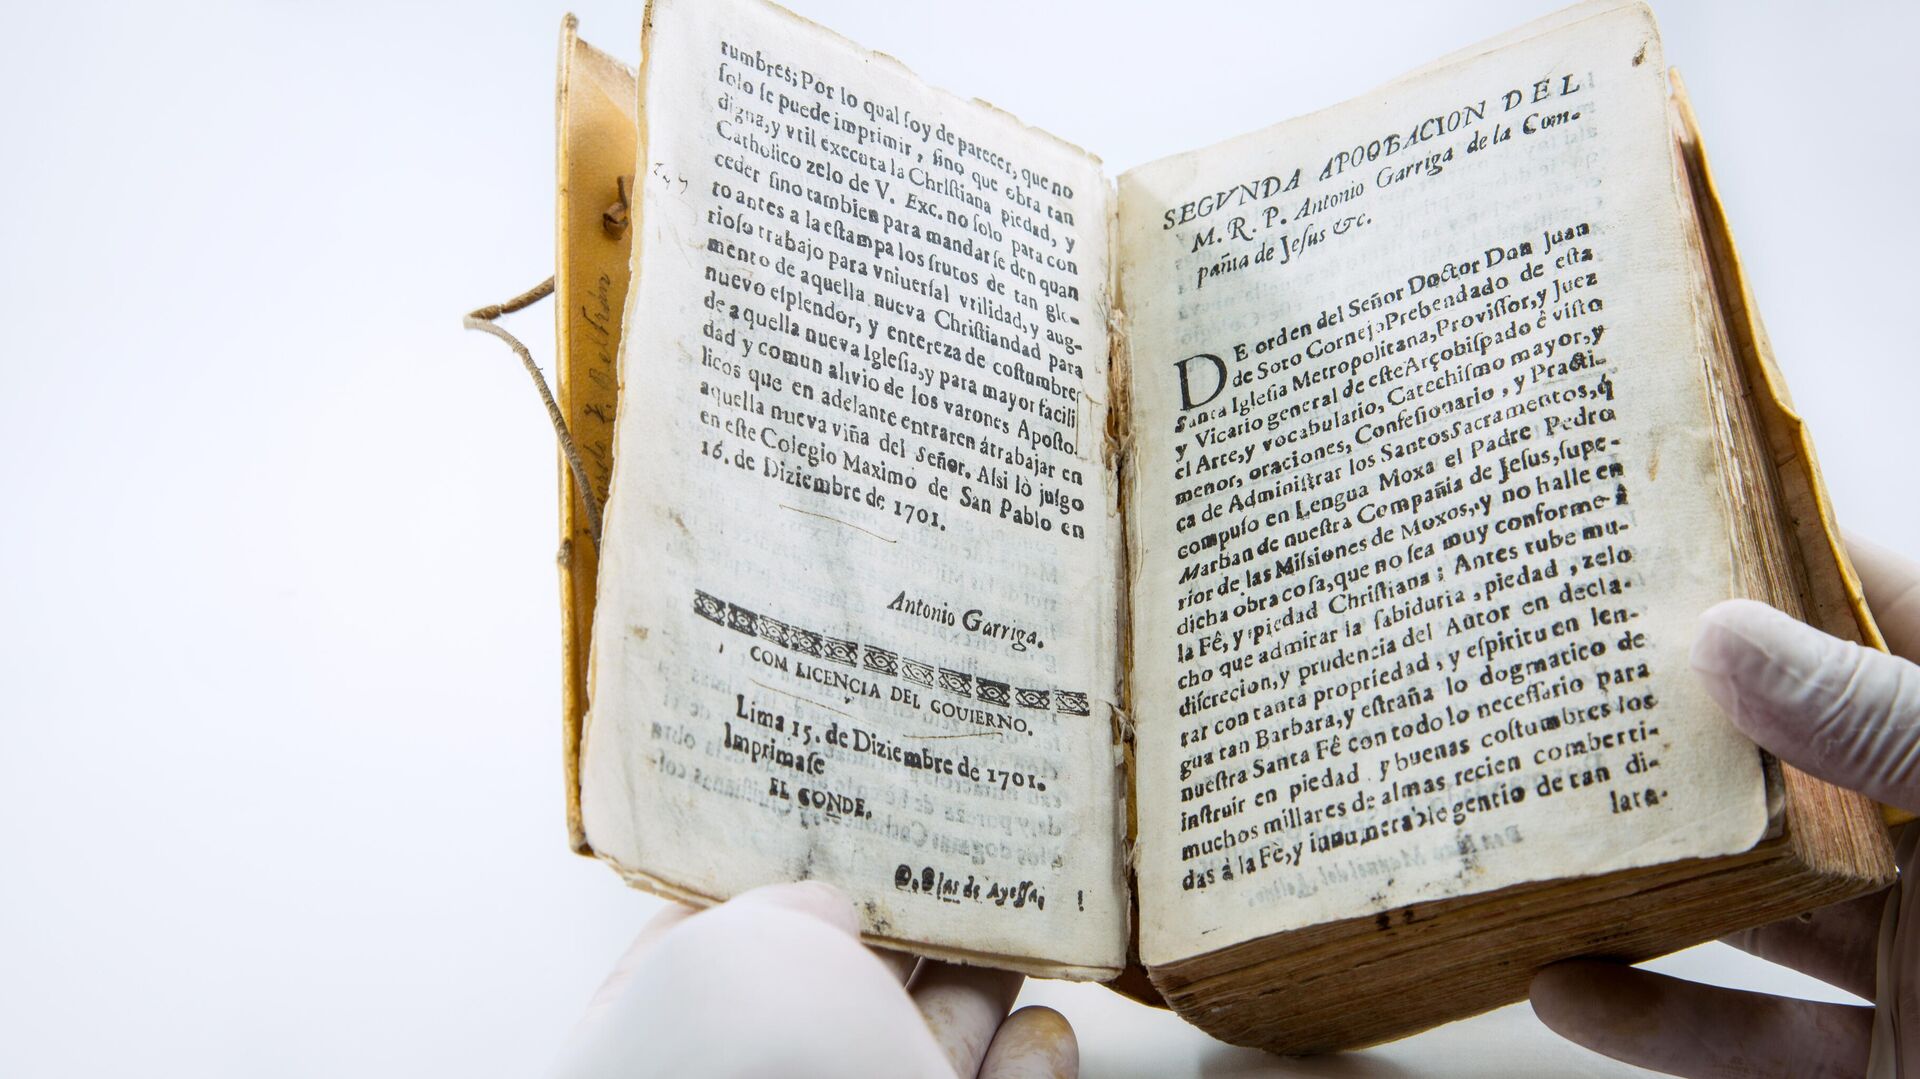 tumbres; Por lo qual ſoy de parecer, que no
ſolo ſe puede imprimir, ſino que obra tan
digna, y vtil executa la Chriſtiana piedad, y
Catholico zelo de V. Exc. no ſolo para con
ceder ſino tambien para mandar ſe den quan
to antes a la eſtampa los frutos de tan glo-
rioſo trabajo para vniuerſal vtilidad, y aug-
mento de aquella nueva Chriſtiandad para
nuevo eſplendor, y entereza de coſtumbreſ
de aquella nueva Igleſia, y para mayor facili
dad y comun alivio de los varones Apoſto.
licos que en adelante entraren átrabajar en
aquella nueva viña del Señor. Aſsi lò juſgo
en eſte Colegio Maximo de San Pablo en
16. de Diziembre de 1701.
Antonio Garriga.
COM LICENCIA DEL GOUIERNO.
Lima 15. de Diziembre de 1701.
Imprimaſe
EL CONDE.
D. Blas de Ayeſſa.
SEGVNDA APOQBACION DEL
M. R. P. Antonio Garriga de la Com-
pañia de Jeſus &c.
DE orden del Señor Doctor Don Juan
de Soto Cornejo Prebendado de eſta
Santa Igleſia Metropolitana, Proviſſor, y Juez
y Vicario general de eſte Arçobiſpado ê viſto
el Arte, y vocabulario, Catechiſmo mayor, y
menor, oraciones, Confeſionario, y Practi-
ca de Adminiſtrar los Santos Sacramentos, q̃
compuſo en Lengua Moxa el Padre Pedro
Marban de nueſtra Compañia de Jeſus, ſupe-
rior de las Miſsiones de Moxos, y no halle en
dicha obra coſa, que no ſea muy conforme à
la Fê, y piedad Chriſtiana; Antes tube mu-
cho que admirar la ſabiduria, piedad, zelo
diſcrecion, y prudencia del Autor en decla-
rar con tanta propriedad, y eſpiritu en len-
gua tan Barbara, y eſtraña lo dogmatico de
nueſtra Santa Fê con todo lo neceſſario para
inſtruir en piedad y buenas coſtumbres los
muchos millares de almas recien comberti-
das à la Fè, y innumerable gentio de tan di-
lata-